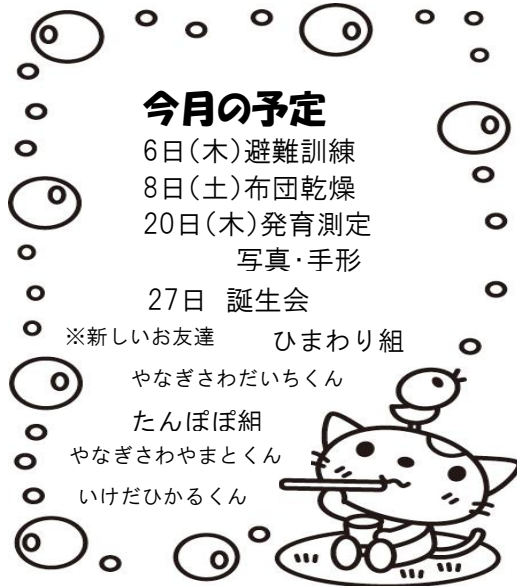 今月の予定
6日(木)避難訓練
8日(土)布団乾燥
20日(木)発育測定
写真・手形
27日 誕生会
※新しいお友達 ひまわり組
やなぎさわだいちくん
たんぽぽ組
やなぎさわやまとくん
いけだひかるくん